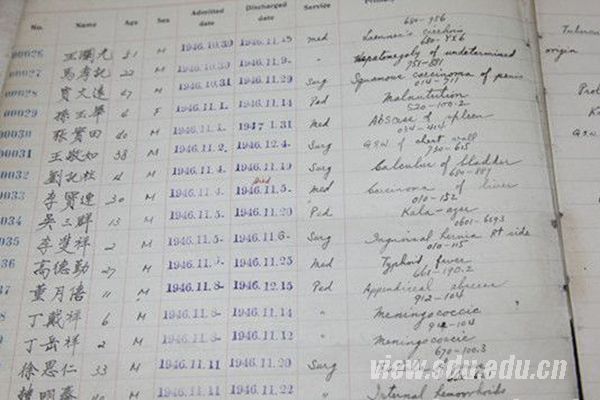 No. Name Age Sex Admitted date Discharged date Service
680-956
00026 王瀾光 31 M 1946.10.30 1946.11.15 med Laennec's cirrhosis
680-956
00027 馬孝記 22 M 1946.10.30 1946.11.9. " Hepatomegaly of undetermined origin
751-881
00028 賈文遠 47 M 1946.10.31 1946.11.29 Surg Squamous carcinoma of penis
014-911
00029 孫玉華 4 F 1946.11.1. 1946.11.14 Ped Malnutrition
520-100.2
00030 張寶田 40 M 1946.11.1. 1947.1.31 Med Abscess of spleen
034-404
00031 王敬如 38 M 1946.11.2. 1946.12.4. Surg G.S.W. of chest wall
730-615
00032 劉記栓 4 M 1946.11.4. 1946.11.19 Surg Calculus of bladder
680-887
Died
00033 李寶連 30 M 1946.11.4. 1946.11.5. med Carcinoma of liver
010-152
00034 吳三群 13 M 1946.11.5. 1946.11.20 Ped Kala-azar
0801-6193
035 李雙祥 2 M 1946.11.5- 1946.11.6- Surg Inguinal hernia Rt side
010-115
36 高德勤 27 M 1946.11. 1946.11.25 Med Typhoid fever
661-190.2
37 董月陪 11 M 1946.11.8- 1946.12.15 Ped Appendiceal abscess
912-104
丁戴祥 " M 1946.11.8- 1946.11.14 " Meningococcic
912-104
丁岳祥 2 M 1946.11.8- 1946.11.12 " Meningococcic
670-100.3
徐恩仁 33 M 1946.11.11 1946.11.20 Surg
明 40 M 1946.11.11 1946.11.22 " Internal hemorrhoids
view.sdu.edu.cn